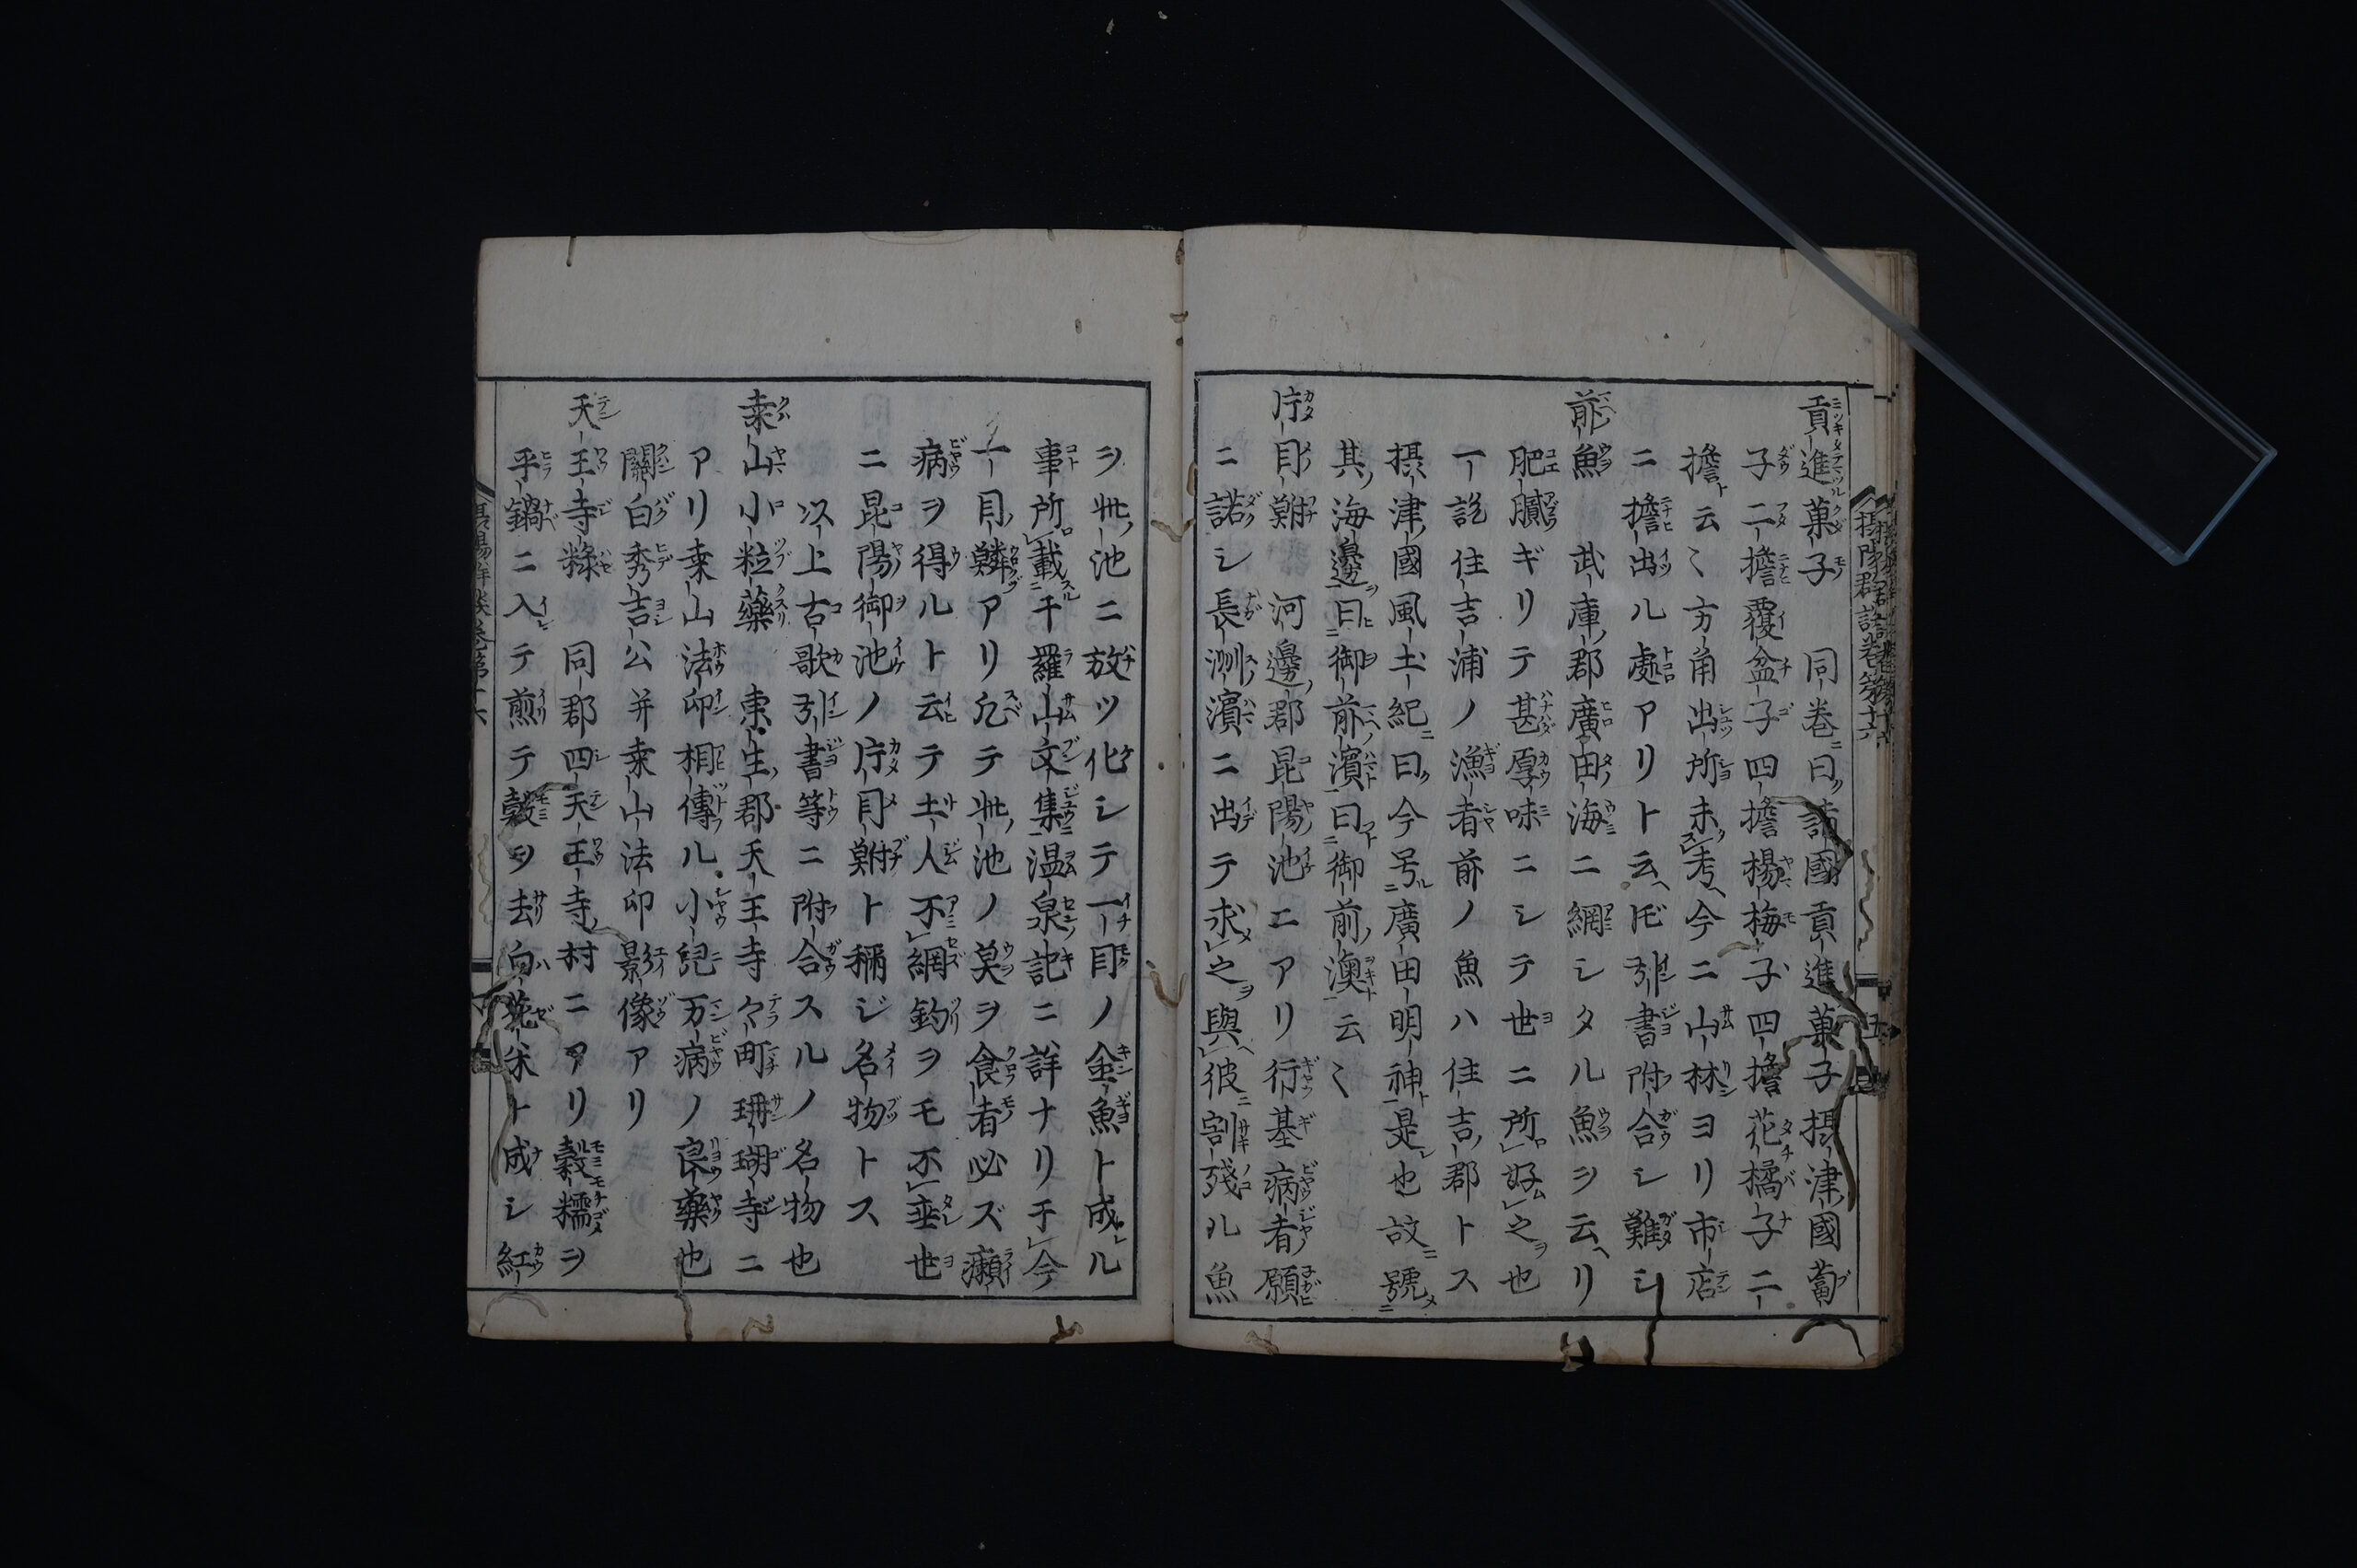 貢進菓子 同巻曰諸國貢進菓子摂津國蔔
子二擔覆盆子四擔楊梅子四擔花橘子二
擔云〻方角出所未考今ニ山林ヨリ市店
ニ擔出ル處アリト云𪜈引書附合シ難シ
前魚 武庫郡廣田海ニ網シタル魚ヲ云リ
肥膩ギリテ甚厚味ニシテ世ニ所好之也
一説住吉浦ノ漁者前ノ魚ハ住吉郡トス
摂津國風土紀曰今号廣田明神是也故號
其海邊曰御前濱曰御前澳云〻
片目鮒 河邊郡昆陽池ニアリ行基病者願
ニ諾シ長洲濱ニ出テ求之與彼割残ル魚
ヲ此池ニ放ツ化シテ一目ノ金魚ト成ル
事所載于羅山文集温泉記ニ詳ナリ于今
一目鱗アリ凡テ此池ノ魚ヲ食者必ズ癩
病ヲ得ルト云テ土人不網釣ヲモ不垂世
ニ昆陽御池ノ片目鮒ト稱ジ名物トス
以上古歌引書等ニ附合スルノ名物也
桒山小粒藥 東生郡天王寺々町珊瑚寺ニ
アリ桒山法印相傳ル小兒万病ノ良藥也
關白秀吉公并桒山法印影像アリ
天王寺糉 同郡四天王寺村ニアリ糓糯ヲ
平鍋ニ入テ煎テ糓ヲ去白花米ト成シ紅
摂陽群談巻第十六